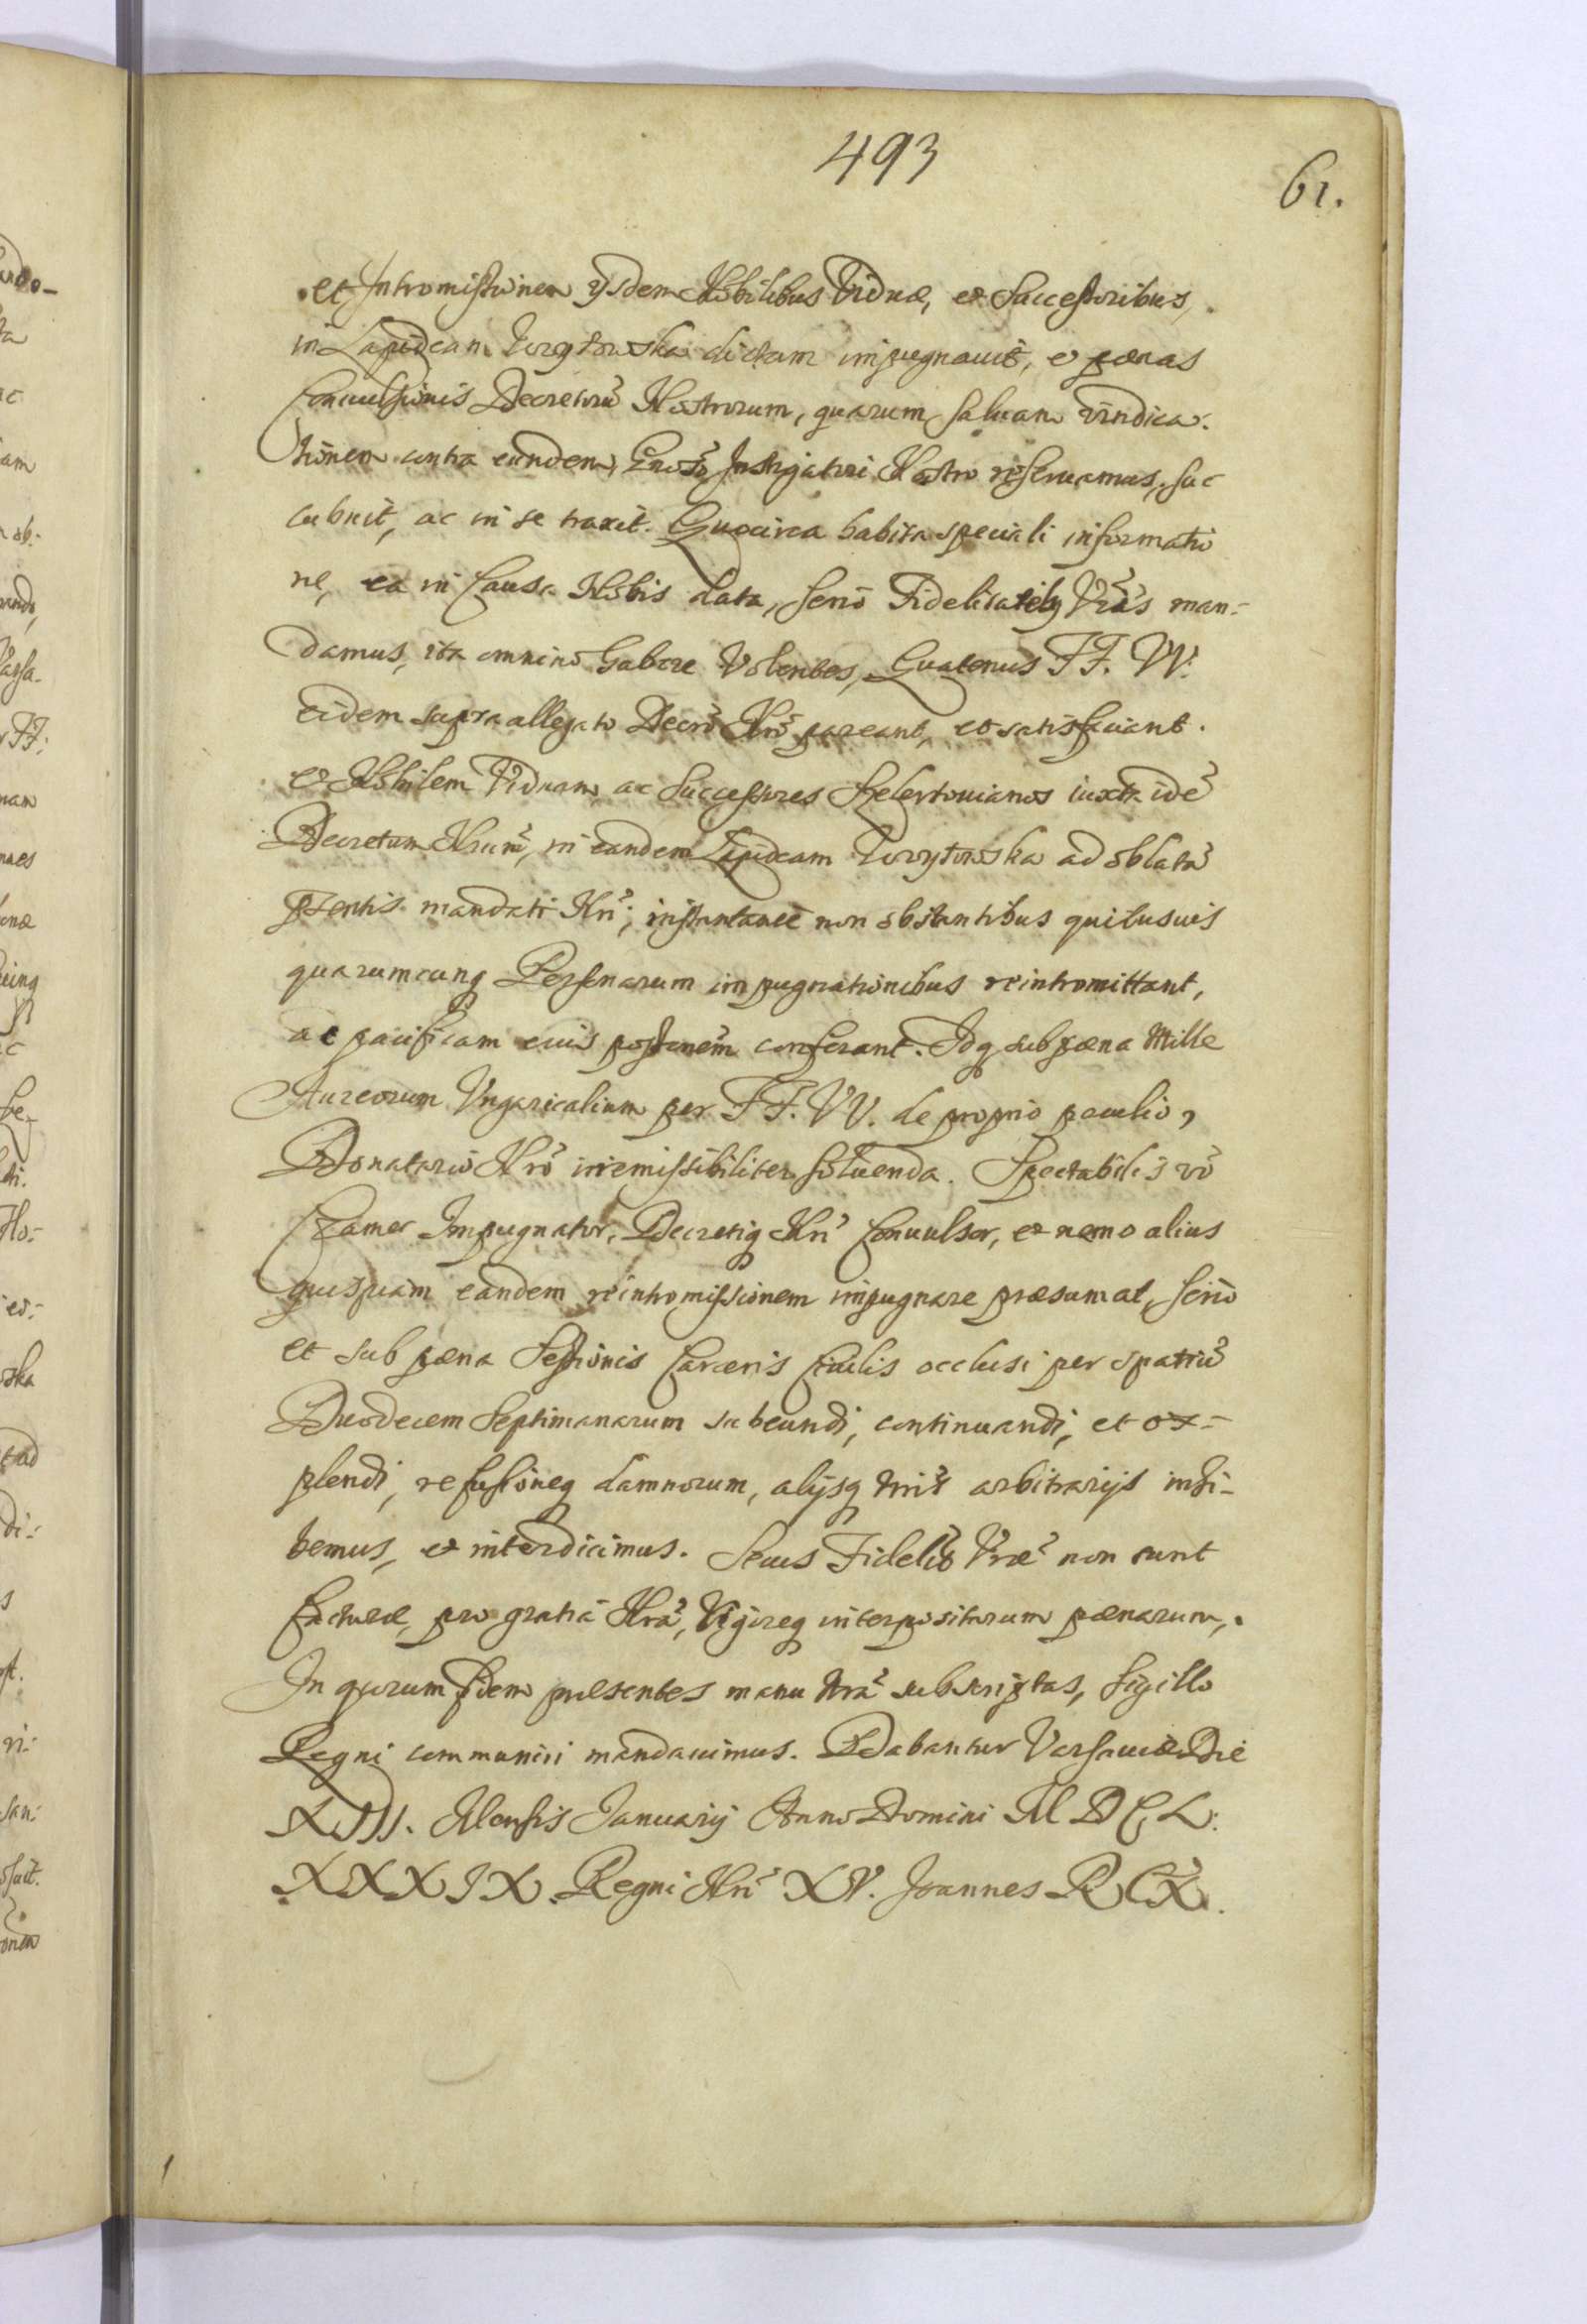 493
61.
et Intromissionem ijsdem Nobilibus Viduæ, et Successoribus,
in Lapideam Korytowska dictam impugnauit, et pænas
Conuulsionis Decretorũ Nostrorum, quarum saluam vindica-
tionem contra eundem, Instigatori Nostro reseruamus, suc
cubuit, ac in se traxit. Quocirca habita speciali informatio
ne, ea in Causa Nobis data, serio Fidelitatibq Vrĩs man-
damus, ita omnino habere Volentes, Quatenus FF. VV.
eidem supra allegato Decrõ Nrõ pareant, et satisfaciant.
et Nobilem Viduam, ac Successores iuxta idẽ
Decretum Nrum̃, in eandem Lapideam Korytowska ad oblatã
pñtis mandati Nrĩ; instantanee non obstantibus quibusuis
quarumcunq Personarum impugnationibus reintromittant,
ac pacificam euis possionem̃ conferant. Idq sub pæna Mille
Aureorum Vngaricalium per FF. VV. de proprio peculio,
Donatario Nrõ irremissibiliter soluenda. Spectabilis võ
Czamer Impugnator, Decretiq Nrĩ Conuulsor, et nemo alius
quispiam eandem reintromissionem impugnare præsumat, serio
et sub pæna Sessionis Carceris Ciuilis occlusi per spatiũ
Duodecem Septimanarum subeundi, continuandi, et ex-
plendi, refusioneq damnorum, alijsq Nrĩs arbitrarijs inhi-
bemus, et interdicimus. Secus Fidelit̃s Vræ̃ non sunt
facturæ, pro gratia Nrã, Vigoreq interpositarum pænarum,
In quorum fidem præsentes manu Nrã subscriptas, Sigillo
Regni communiri mandauimus. Dabantur Varsauiæ Die
XIII. Mensis Ianuarij Anno Domini M D C L.
XXXIX. Regni Nrĩ XV. Joannes REX.